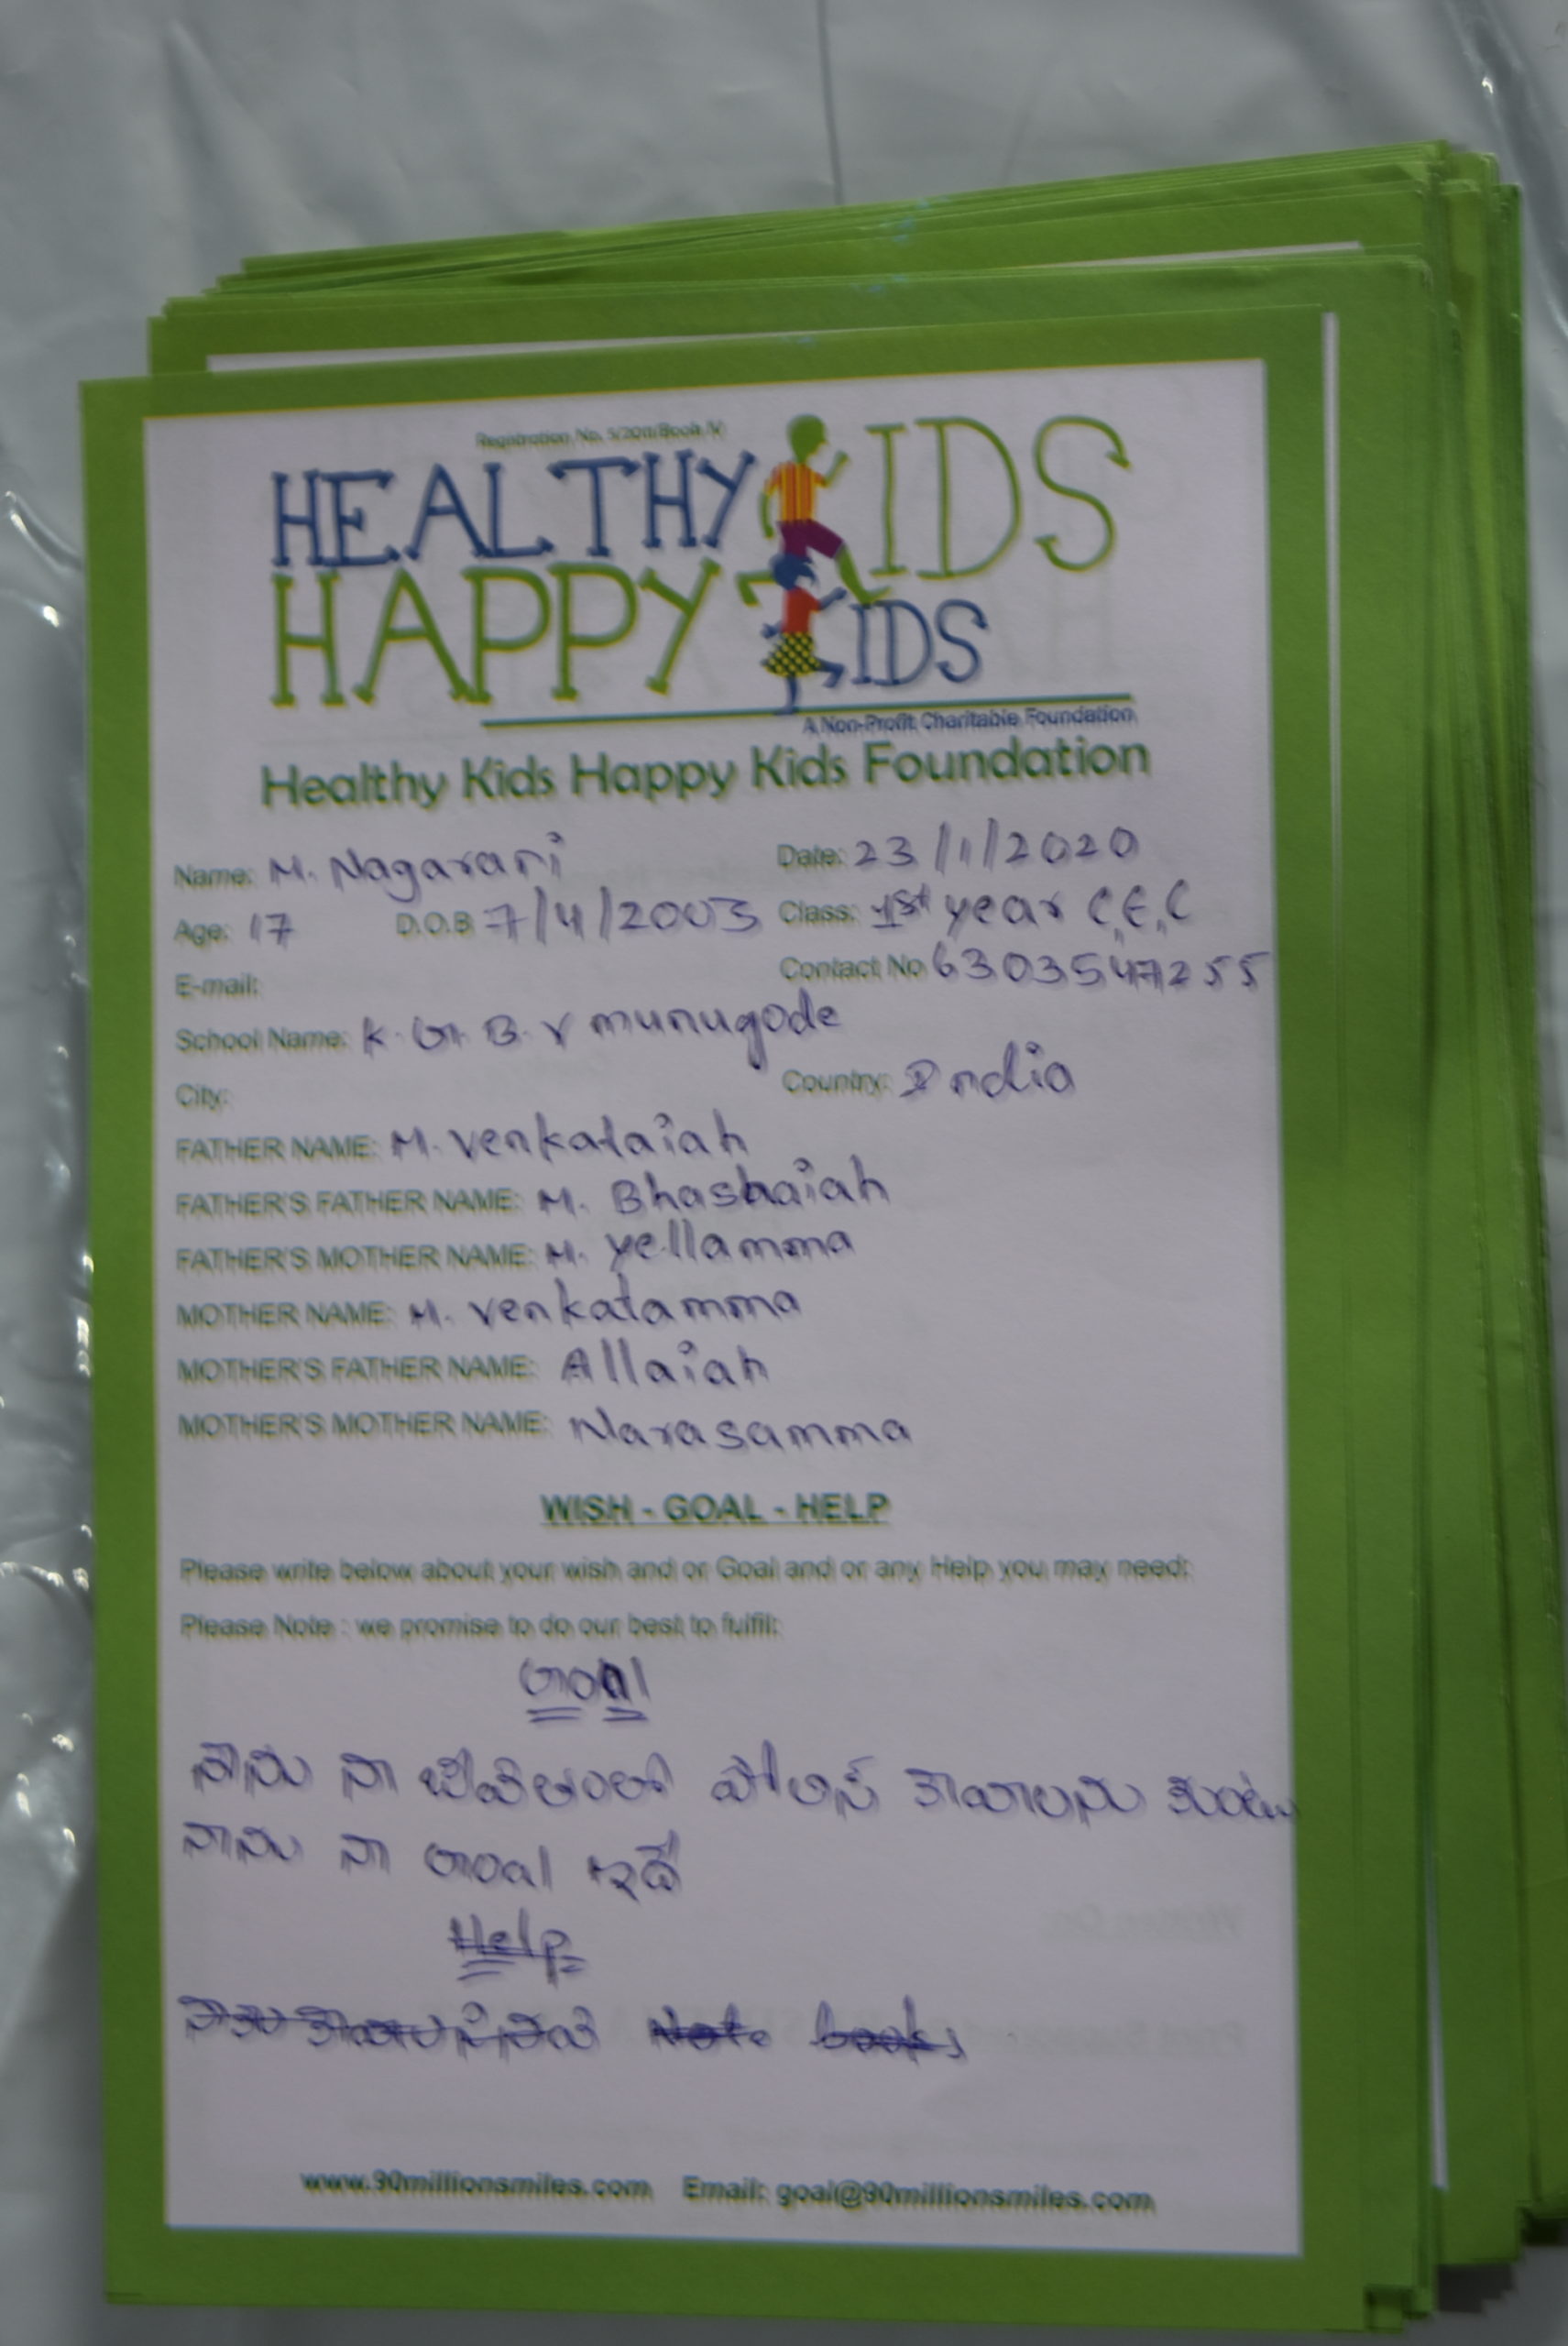 Registration No. 5/2011/Book IV
HEALTHY KIDS
HAPPY KIDS
A Non-Profit Charitable Foundation
Healthy Kids Happy Kids Foundation
Name: M. Nagarani Date: 23/1/2020
Age: 17 D.O.B 7/4/2003 Class: 1st year C.E.C
E-mail: Contact No 6303547255
School Name: K. G. B. V munugode
City: Country: India
FATHER NAME: M. Venkataiah
FATHER'S FATHER NAME: M.
FATHER'S MOTHER NAME: M. Yellamma
MOTHER NAME: M. Venkatamma
MOTHER'S FATHER NAME: Allaiah
MOTHER'S MOTHER NAME: Narasamma
WISH - GOAL - HELP
Please write below about your wish and or Goal and or any Help you may need:
Please Note : we promise to do our best to fulfil:
Goal
నాను నా జీవితంలో పోలిస్ కావాలను కుంటు
నాను నా Goal ఇదే
Help
Note books
www.90millionsmiles.com Email: goal@90millionsmiles.com